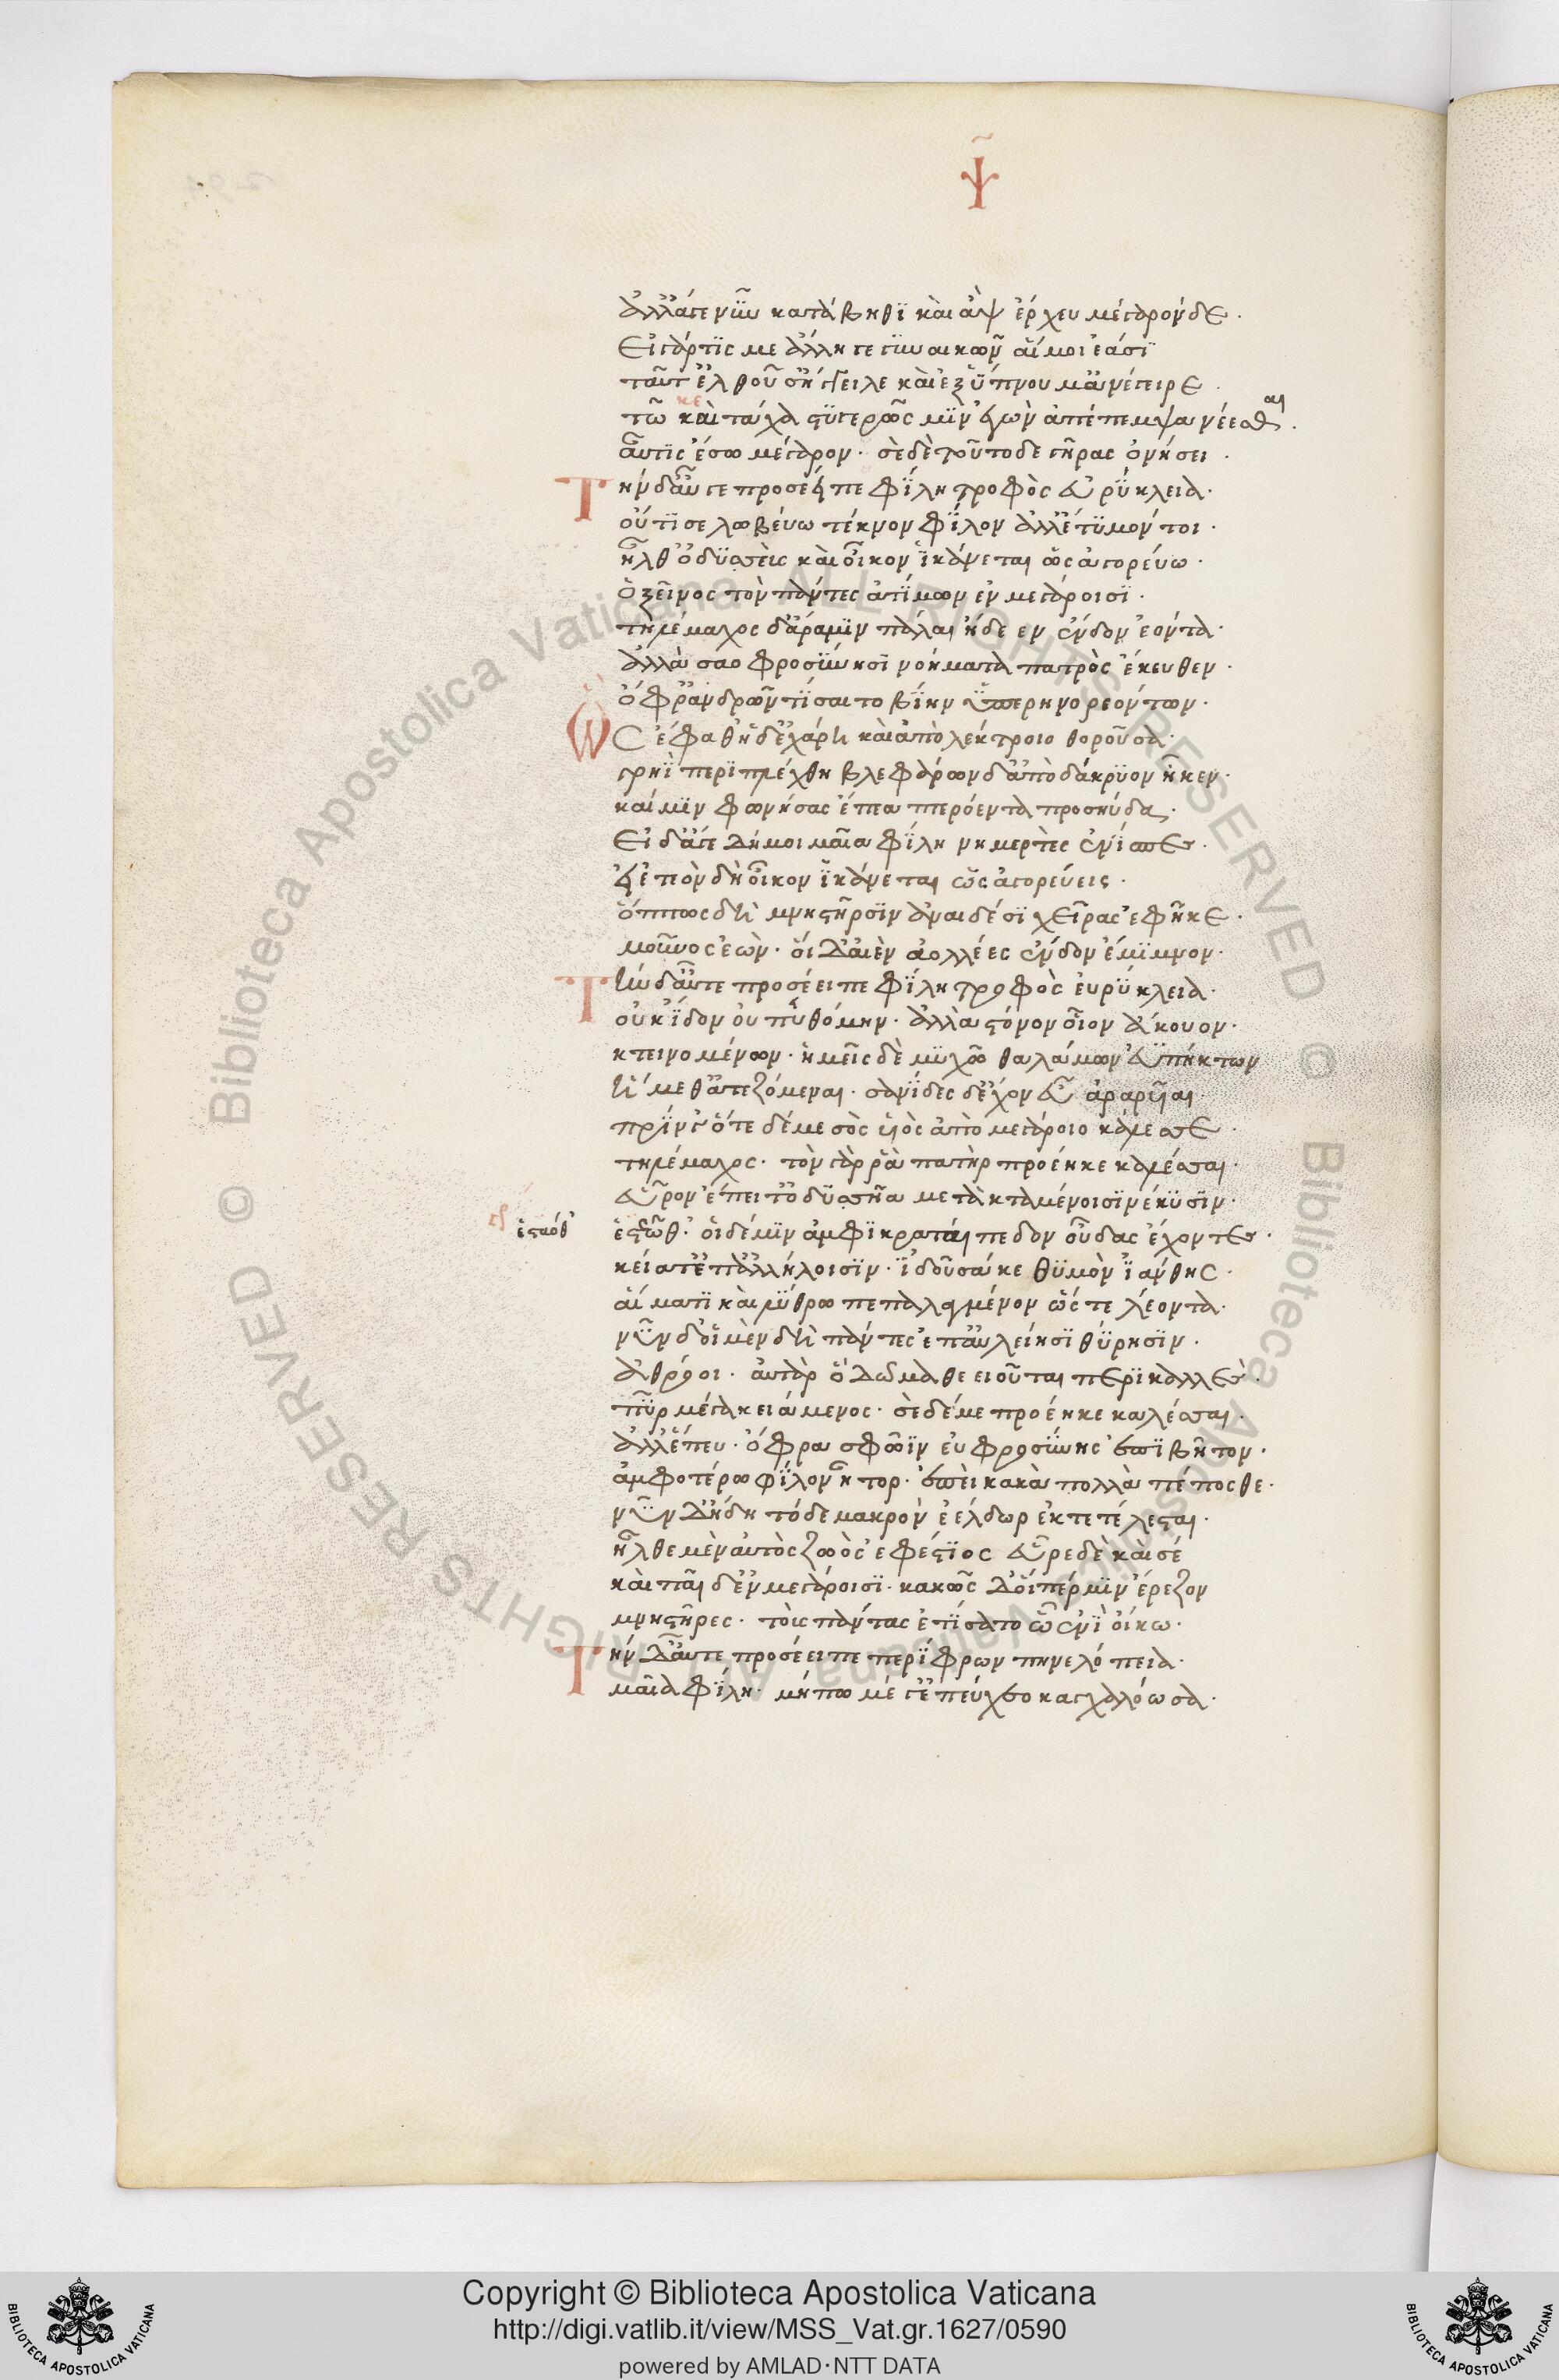 Ψ
ἀλλ' ἄγε νῦν κατάβηθι καὶ ἂψ ἔρχευ μέγαρόνδε.
Εἰ γάρ τίς μ' ἄλλη γε γυναικῶν αἵ μοι ἔασι
ταῦτ' ἐλθοῦσ' ἤγγειλε καὶ ἐξ ὕπνου μ' ἀνέγειρε.
κε
τῶ καὶ τάχα στυγερῶς μιν ἐγὼν ἀπέπεμψα νέεσθαι.
αὖτις ἔσω μέγαρον. σὲ δὲ τοῦτό δε γῆρας ὀνήσει.
Τὴν δ' αὖτε προσέειπε φίλη τροφὸς εὐρύκλεια.
οὔτι σε λωβεύω τέκνον φίλον ἀλλ' ἔτυμόν τοι.
ἦλθ' ὀδυσσεὺς καὶ οἶκον ἱκάνεται ὡς ἀγορεύω.
ὁ ξεῖνος τὸν πάντες ἀτίμων ἐν μεγάροισι.
τηλέμαχος δ' ἄρα μιν πάλαι ᾔδεεν ἔνδον ἐόντα.
ἀλλὰ σαοφροσύνησι νοήματα πατρὸς ἔκευθεν.
ὄφρ' ἀνδρῶν τίσαιτο βίην ὑπερηνορεόντων.
Ὣς ἔφαθ' ἡ δ' ἐχάρη καὶ ἀπὸ λέκτροιο θοροῦσα.
γρηῒ περιπλέχθη βλεφάρων δ' ἀπὸ δάκρυον ἧκεν.
καί μιν φωνήσασ' ἔπεα πτερόεντα προσηύδα.
Εἰ δ' ἄγε δή μοι μαῖα φίλη νημερτὲς ἐνίσπες.
εἰ ἐτεὸν δὴ οἶκον ἱκάνεται ὡς ἀγορεύεις.
ὅππως δὴ μνηστῆρσιν ἀναιδέσι χεῖρας ἐφῆκε.
μοῦνος ἐὼν. οἱ δ' αἰὲν ἀολλέες ἔνδον ἔμιμνον.
Τὴν δ' αὖτε προσέειπε φίλη τροφὸς εὐρύκλεια.
οὐκ ἴδον οὐ πυθόμην. ἀλλὰ στόνον οἶον ἄκουον.
κτεινομένων. ἡμεῖς δὲ μυχῶ θαλάμων εὐπήκτων
ἥμεθ' ἀτυζόμεναι. σανίδες δ' ἔχον εὖ ἀραρυῖαι.
πρίν γ' ὅτε δή με σὸς υἱὸς ἀπὸ μεγάροιο κάλεσσε.
τηλέμαχος. τὸν γάρ ῥα πατὴρ προέηκε καλέσσαι.
εὗρον ἔπειτ' ὀδυσσῆα μετὰ κταμένοισι νέκυσιν.
γρ ἑσταόθ'
ἑστῶθ'. οἱ δέ μιν ἀμφὶ κραταίπεδον οὖδας ἔχοντες.
κείατ' ἐπ' ἀλλήλοισιν. ἰδοῦσά κε θυμὸν ἰάνθης.
αἵματι καὶ λύθρω πεπαλαγμένον ὥστε λέοντα.
νῦν δ' οἱ μὲν δὴ πάντες ἐπ' αὐλείησι θύρησιν.
ἀθρόοι. αὐτὰρ ὃ δῶμα θεειοῦται περικαλλὲς.
πῦρ μέγα κειάμενος. σὲ δέ με προέηκε καλέσσαι.
ἀλλ' ἕπευ. ὄφρα σφῶϊν ἐυφροσύνης ἐπιβῆτον.
ἀμφοτέρω φίλον ἦτορ. ἐπεὶ κακὰ πολλὰ πέποσθε.
νῦν δ' ἤδη τόδε μακρὸν ἐέλδωρ ἐκτετέλεσται.
ἦλθε μὲν αὐτὸς ζωὸς ἐφέστιος εὗρε δὲ καὶ σὲ
καὶ παῖδ' ἐν μεγάροισι. κακῶς δ' οἵπέρ μιν ἔρεζον
μνηστῆρες. τοὺς πάντας ἐτίσατο ᾧ ἐνὶ οἴκω.
Τὴν δ' αὖτε προσέειπε περίφρων πηνελόπεια.
μαῖα φίλη. μήπω μέγ' ἐπεύχεο καγχαλόωσα.
Copyright © Biblioteca Apostolica Vaticana
http://digi.vatlib.it/view/MSS_Vat.gr.1627/0590
powered by AMLAD·NTT DATA